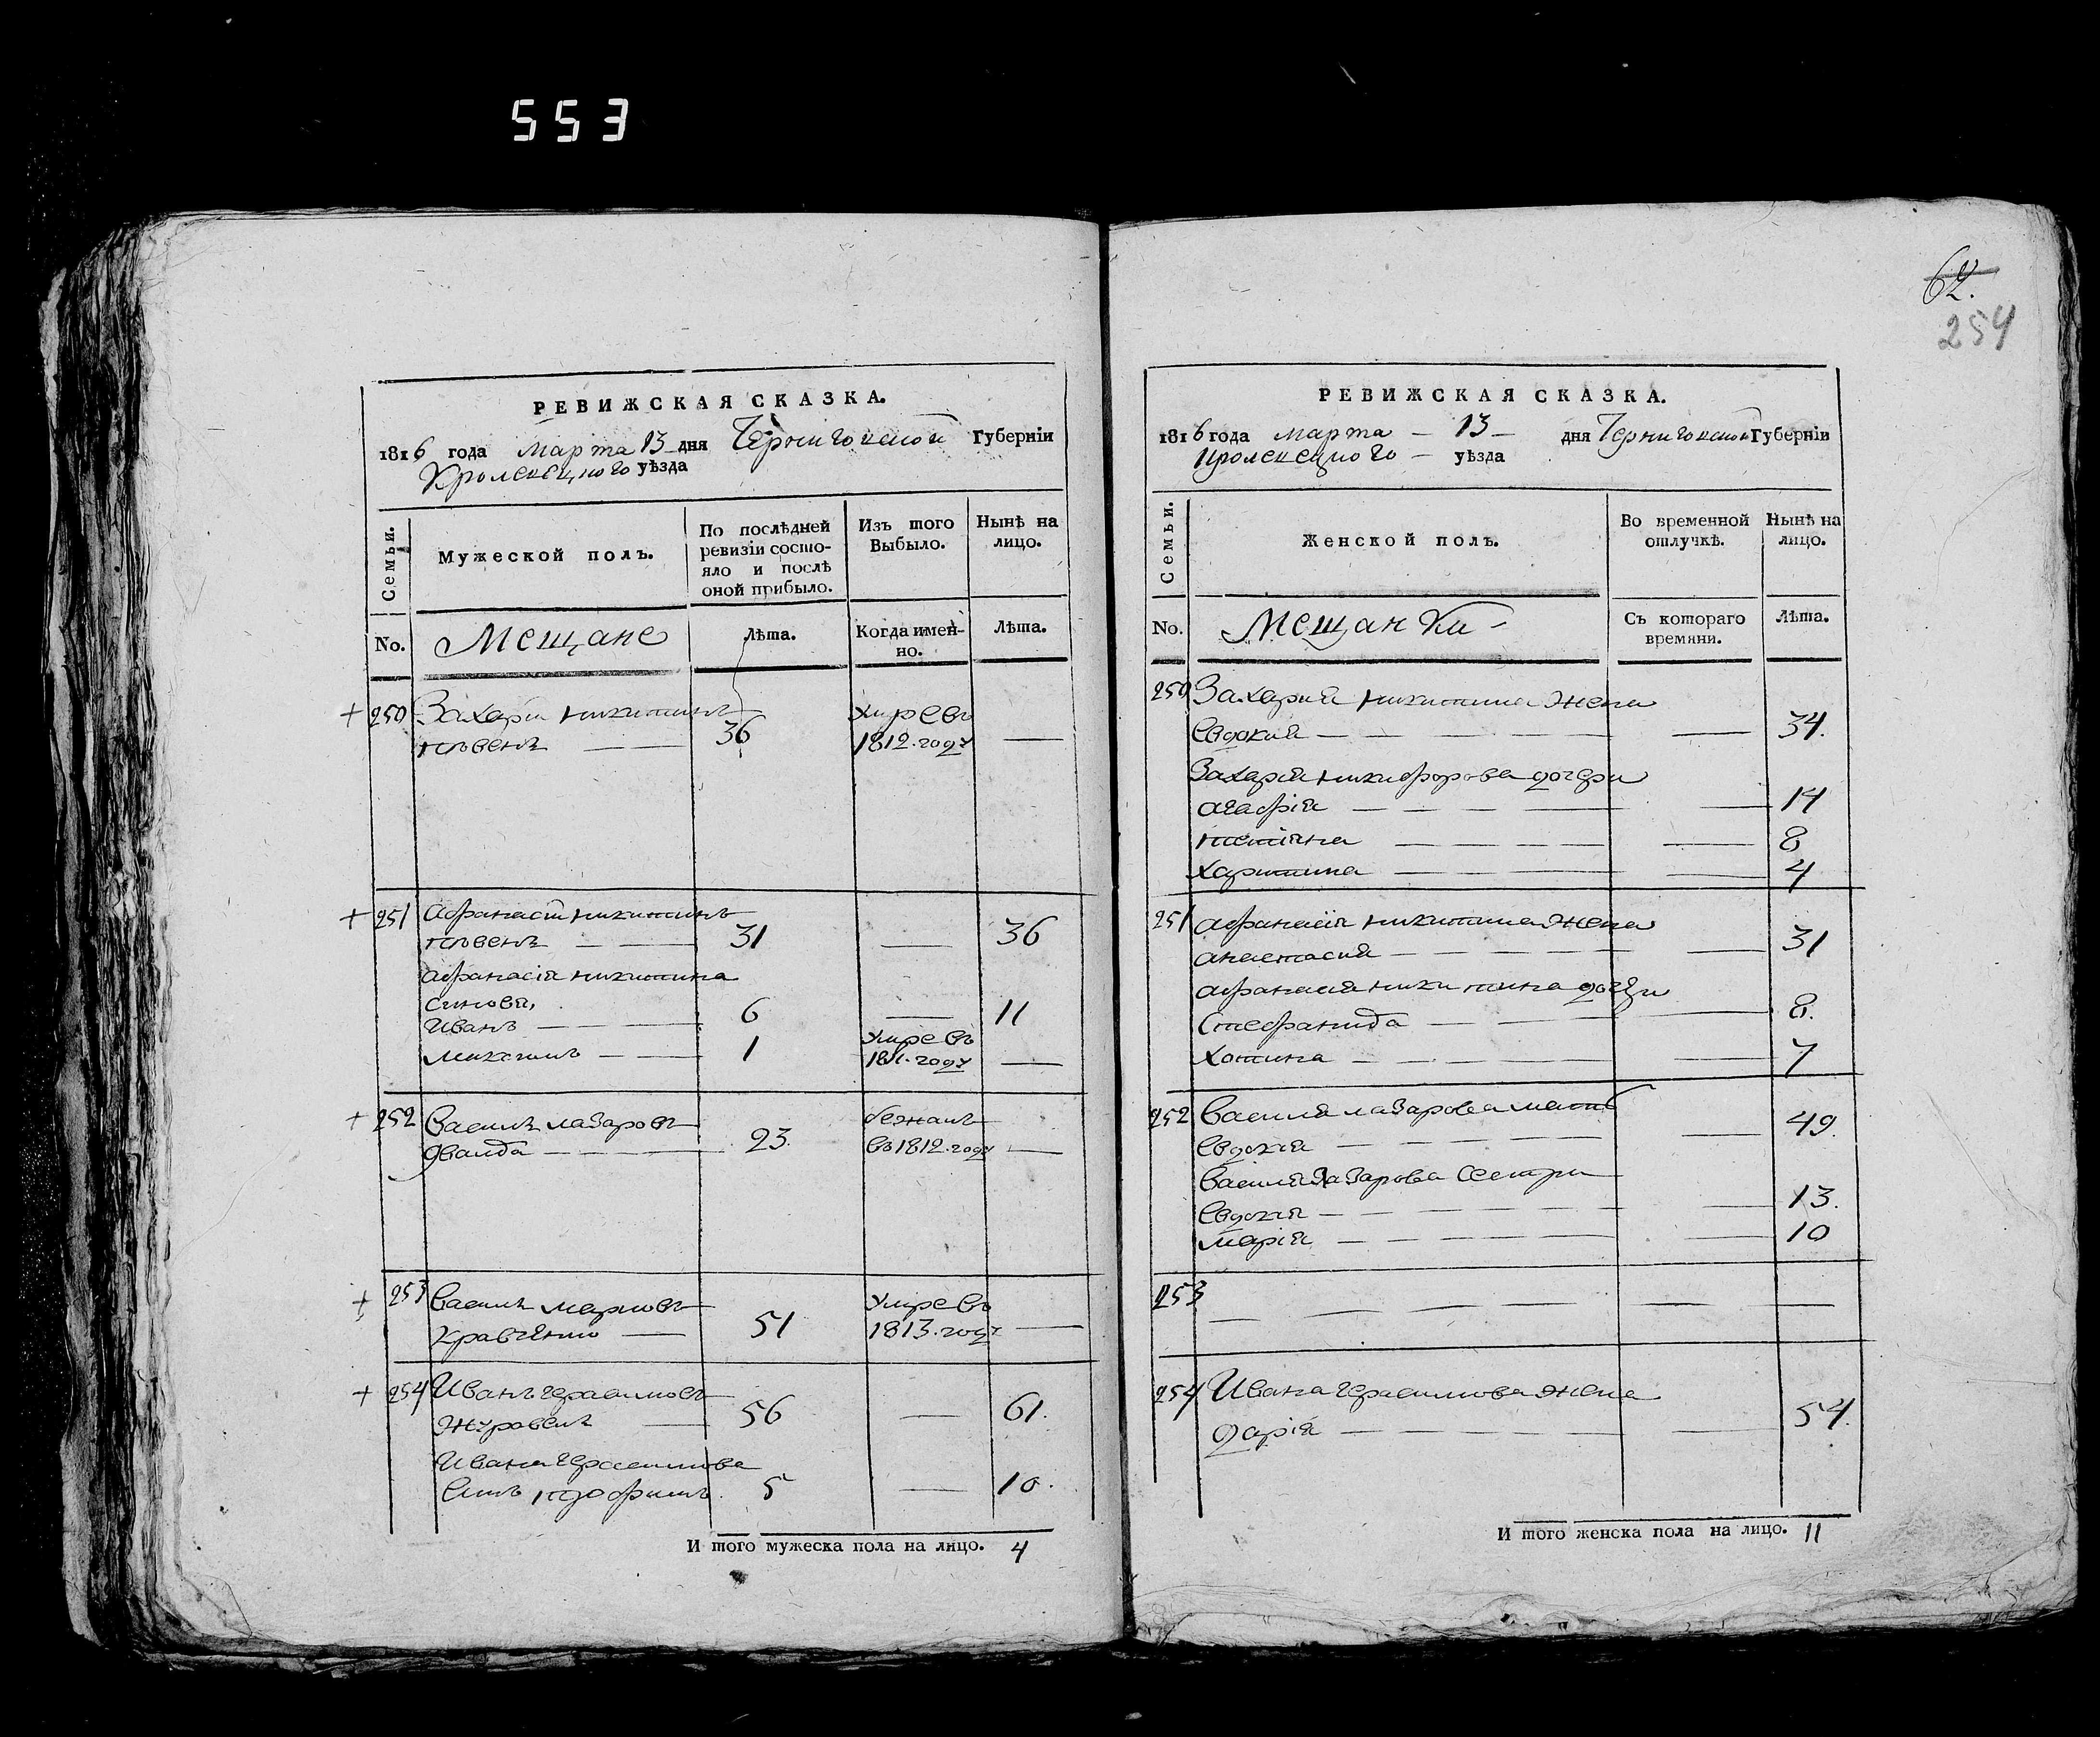 553
РЕВИЖСКАЯ СКАЗКА.
1816 года Марта 13 дня Черниговской Губернїи
Кролевецкого уѣзда
Семьи.
Мужеской полъ.
По послѣдней ревизїи состо-яло и послѣ оной прибыло.
Изъ того Выбыло.
Нынѣ на лицо.
No.
Мещане
Лѣта.
Когда имен-но.
Лѣта.
+ 250 Захарїи Никитинъ 36 Умре въ
1812. году —
+ 251 Афанасїи Никитинъ
31 — 36
Афанасїя Никитина
синовя,
Иванъ 6 — 11
Михаилъ 1 Умре въ
1811. году —
+ 252 Василь Лазаровъ
23. бежалъ
въ 1812. году —
+ 253 Василь Марковъ
Кравченко 51 Умре въ
1813. году —
+ 254 Иванъ Герасимовъ
Журавель 56 — 61.
Ивана Герасимова
Синъ 5 — 10.
И того мужеска пола на лицо. 4
62.
254
РЕВИЖСКАЯ СКАЗКА.
1816 года Марта — 13 — дня Черниговской Губернїи
Кролевецкого — уѣзда
Семьи.
Женской полъ.
Во временной отлучкѣ.
Нынѣ на лицо.
No.
Мещанки
Съ котораго времяни.
Лѣта.
250 Захария Никитина Жена
Евдокия — 34.
Захария Никифорова дочери
Агафїя — 14
Татїяна — 8
Харитина — 4
251 Афанасїя Никитина Жена
Анастасия — 31
Афанасия Никитина дочери
Стефанида — 8.
Хотина — 7
252 Василя Лазарова мать
Евдокия — 49.
Василя Лазарова Сестри
Евдокия — 13.
Марїя — 10
253 — — —
254 Ивана Герасимова жена
Дарїя — 54.
И того женска пола на лицо. 11